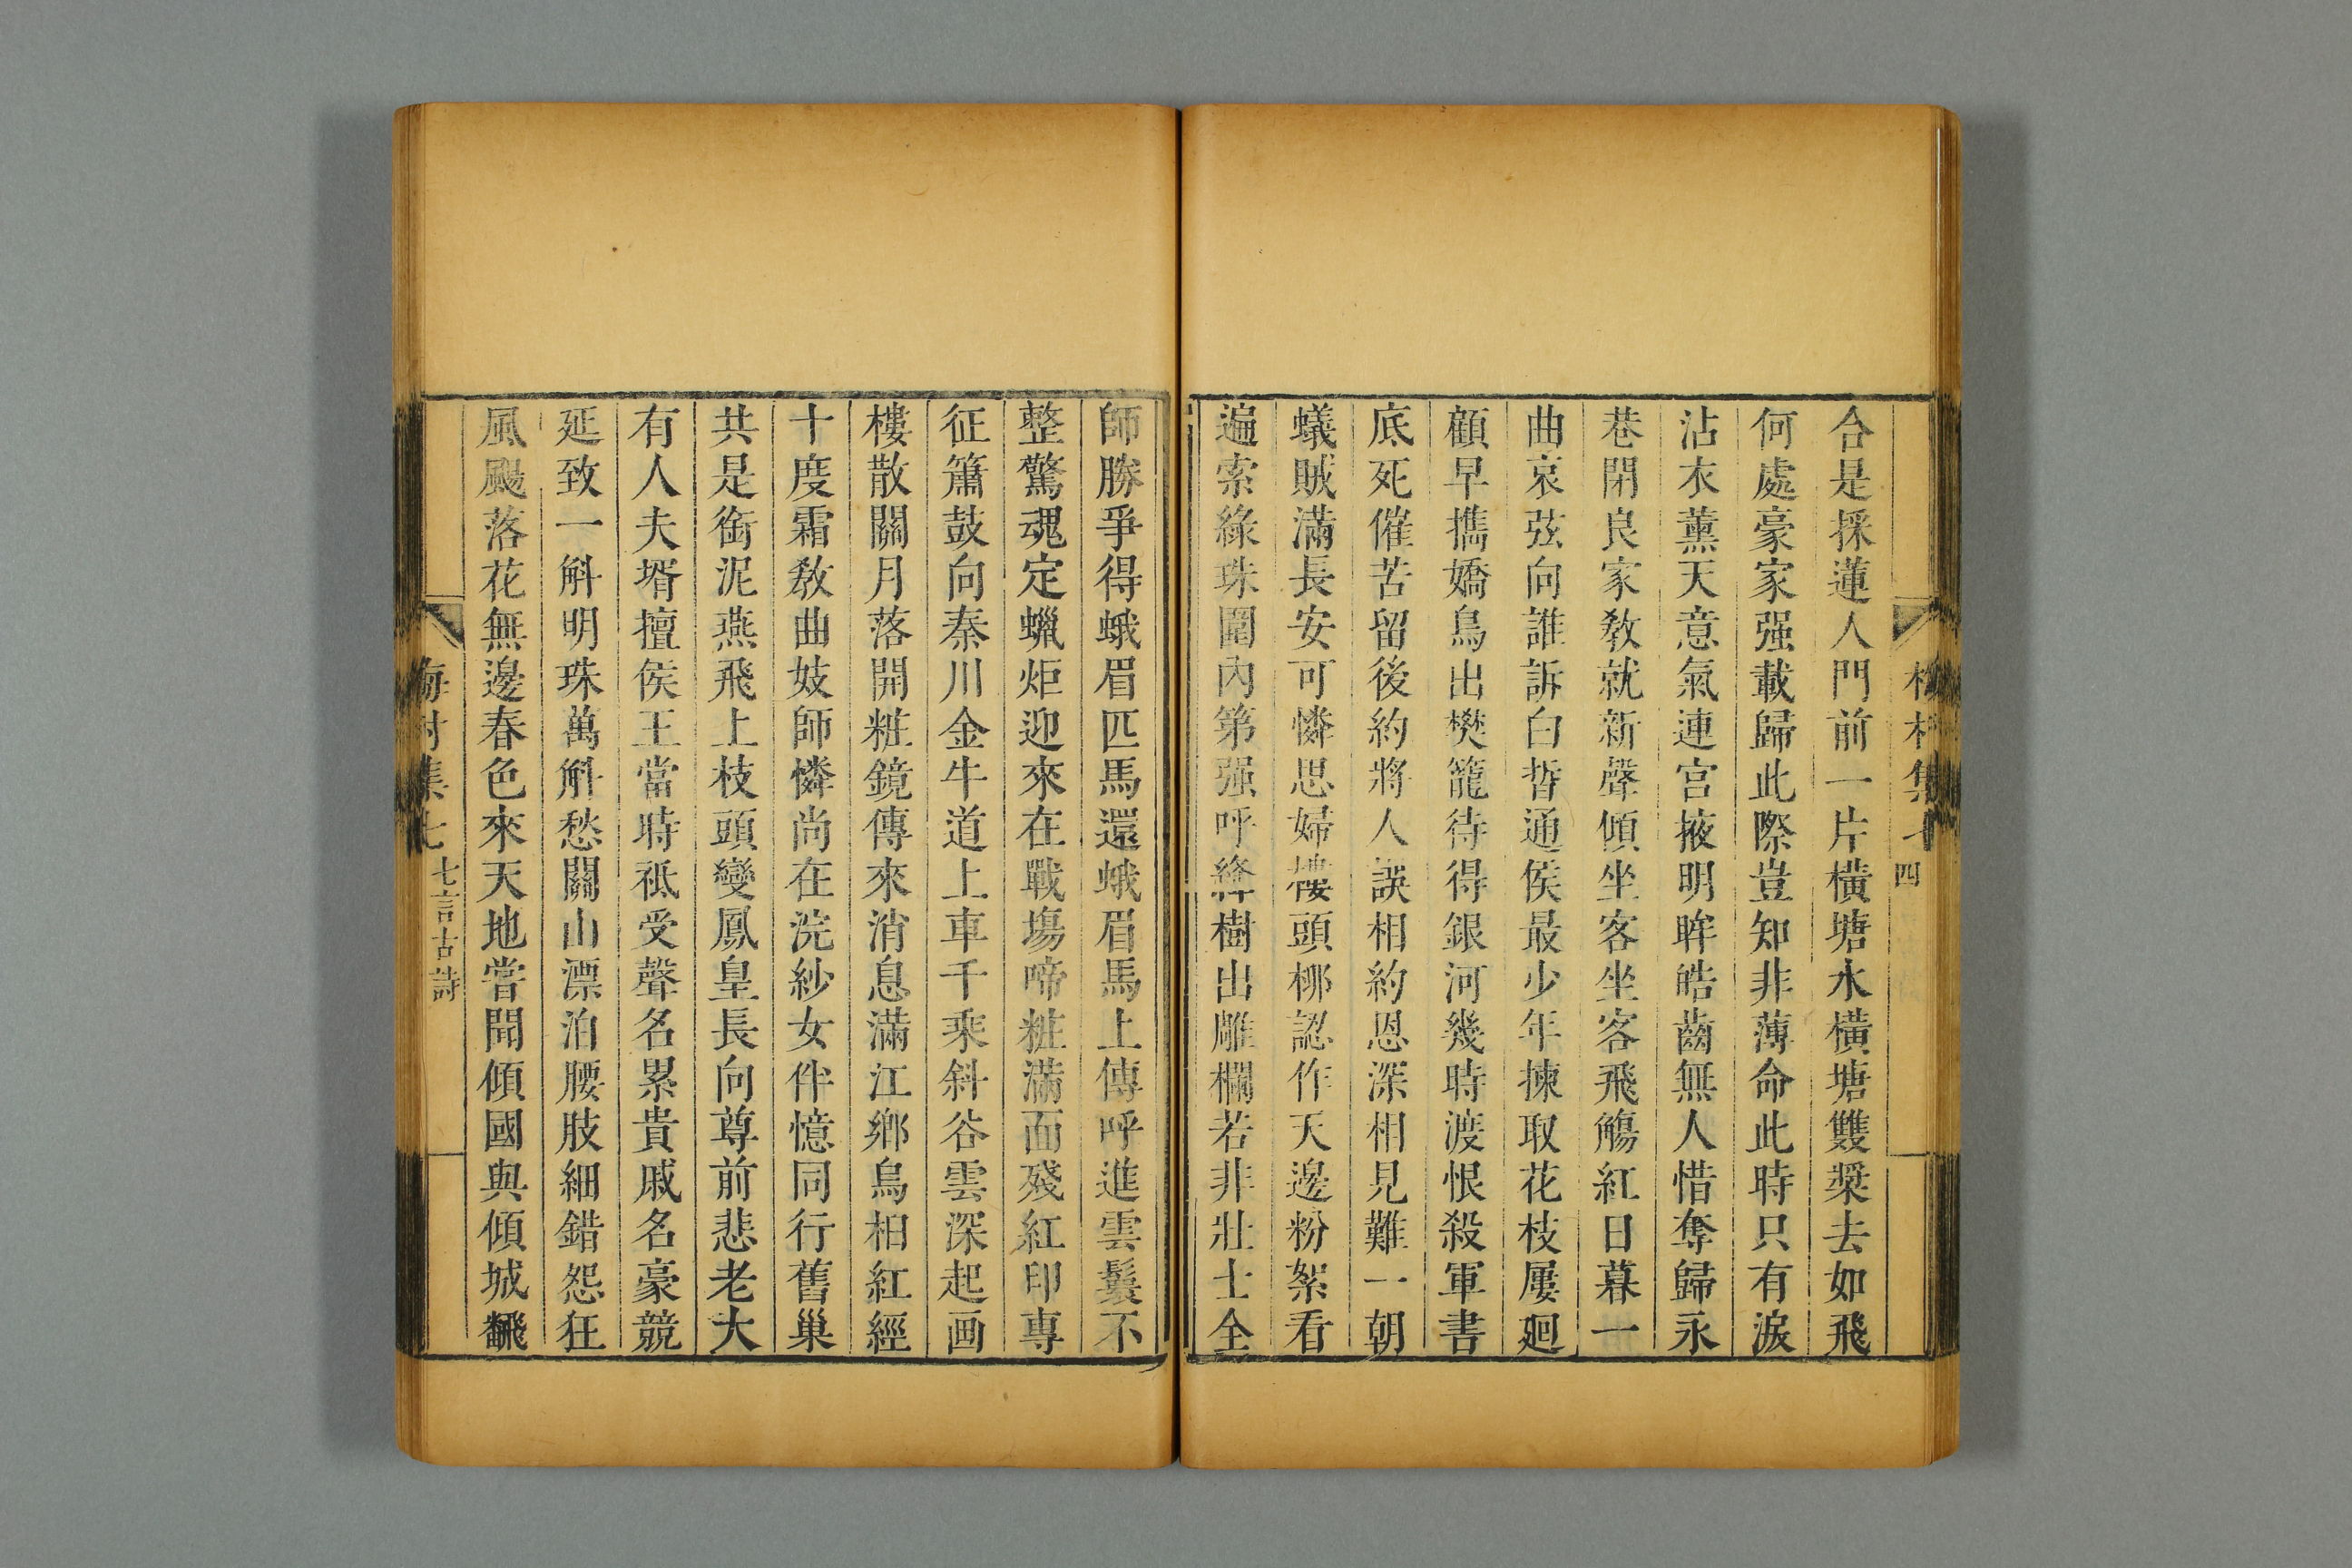 合是採蓮人門前一片橫塘水橫塘雙槳去如飛
何處豪家强載歸此際豈知非薄命此時只有淚
沾衣薰天意氣連宮掖明眸皓齒無人惜奪歸永
巷閉良家敎就新聲傾坐客坐客飛觴紅日暮一
曲哀弦向誰訴白皙通侯最少年揀取花枝屢廻
顧早擕嬌鳥出樊籠待得銀河幾時渡恨殺軍書
底死催苦留後約將人誤相約恩深相見難一朝
蟻賊滿長安可憐思婦樓頭栁認作天邊粉絮看
遍索綠珠圍內第强呼絳樹出雕欄若非壯士全
師勝爭得蛾眉匹馬還蛾眉馬上傳呼進雲鬟不
整驚魂定蠟炬迎來在戰塲啼粧滿面殘紅印專
征簫鼓向秦川金牛道上車千乘斜谷雲深起画
樓散關月落開粧鏡傳來消息滿江鄉烏桕紅經
十度霜敎曲妓師憐尚在浣紗女伴憶同行舊巢
共是銜泥燕飛上枝頭變鳳皇長向尊前悲老大
有人夫壻擅侯王當時秪受聲名累貴戚名豪競
延致一斛明珠萬斛愁關山漂泊腰肢細錯怨狂
風颺落花無邊春色來天地嘗聞傾國與傾城飜
集七 七言古詩
四